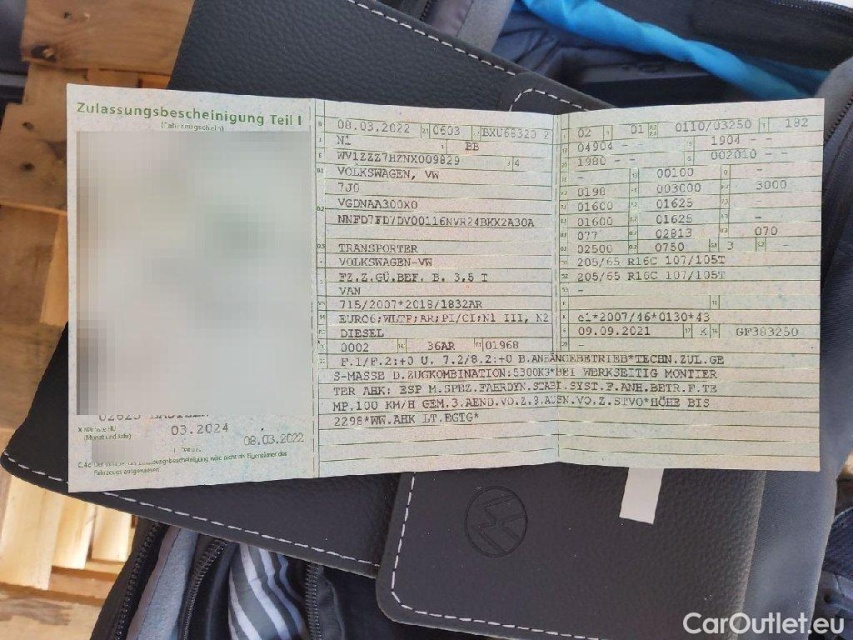 Zulassungsbescheinigung Teil I
(Fahrzeugschein)
03.2024
08.03.2022
08.03.2022 0603
N1 BB
VOLKSWAGEN, VW
7J0
VGDNAA300X0
TRANSPORTER
VOLKSWAGEN-VW
FZ.Z.GÜ.BEF. B. 3,5 T
VAN
715/2007*2018/1832AR
EURO6;WLTP;AR;PI/CI;N1 III, N2
DIESEL
0002 36AR 01968
02 01 0110/03250 192
04904 - - 1904 - -
1980 - - 002010 - -
- 00100 -
0198 003000 3000
01600 01625 -
01600 01625 -
077 02813 070
02500 0750 3 -
205/65 R16C 107/105T
205/65 R16C 107/105T
-
e1*2007/46*0130*43
09.09.2021 K GF383250
F.1/F.2:+0 U. 7.2/8.2:+0 B.ANHÄNGEBETRIEB*TECHN.ZUL.GE
S-MASSE D.ZUGKOMBINATION:5300KG*BEI WERKSEITIG MONTIER
TER AHK: ESP M.SPEZ.FAHRDYN.STABI.SYST.F.ANH.BETR.F.TE
MP.100 KM/H GEM.3.AEND.VO.Z.9.AUSN.VO.Z.STVO*HÖHE BIS
2298*WW.AHK LT.EGTG*
CarOutlet.eu